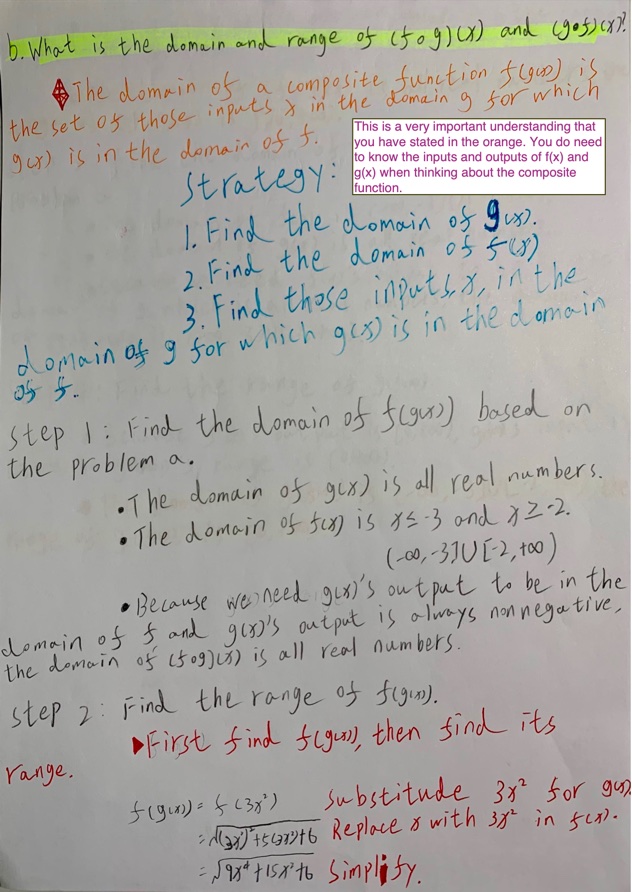 b. What is the domain and range of (f∘g)(x) and (g∘f)(x)?
The domain of a composite function f(g(x)) is
the set of those inputs x in the domain g for which
g(x) is in the domain of f.
This is a very important understanding that
you have stated in the orange. You do need
to know the inputs and outputs of f(x) and
g(x) when thinking about the composite
function.
Strategy:
1. Find the domain of g(x).
2. Find the domain of f(x)
3. Find those inputs, x, in the
domain of g for which g(x) is in the domain
of f.
Step 1: Find the domain of f(g(x)) based on
the problem a.
• The domain of g(x) is all real numbers.
• The domain of f(x) is x≤-3 and x≥-2.
(-∞, -3]∪[-2, +∞)
• Because we need g(x)'s output to be in the
domain of f and g(x)'s output is always nonnegative,
the domain of (f∘g)(x) is all real numbers.
Step 2: Find the range of f(g(x)).
▶First find f(g(x)), then find its
range.
f(g(x)) = f(3x²) Substitude 3x² for g(x).
= √(3x²)²+5(3x²)+6 Replace x with 3x² in f(x).
= √9x⁴+15x²+6 Simplify.